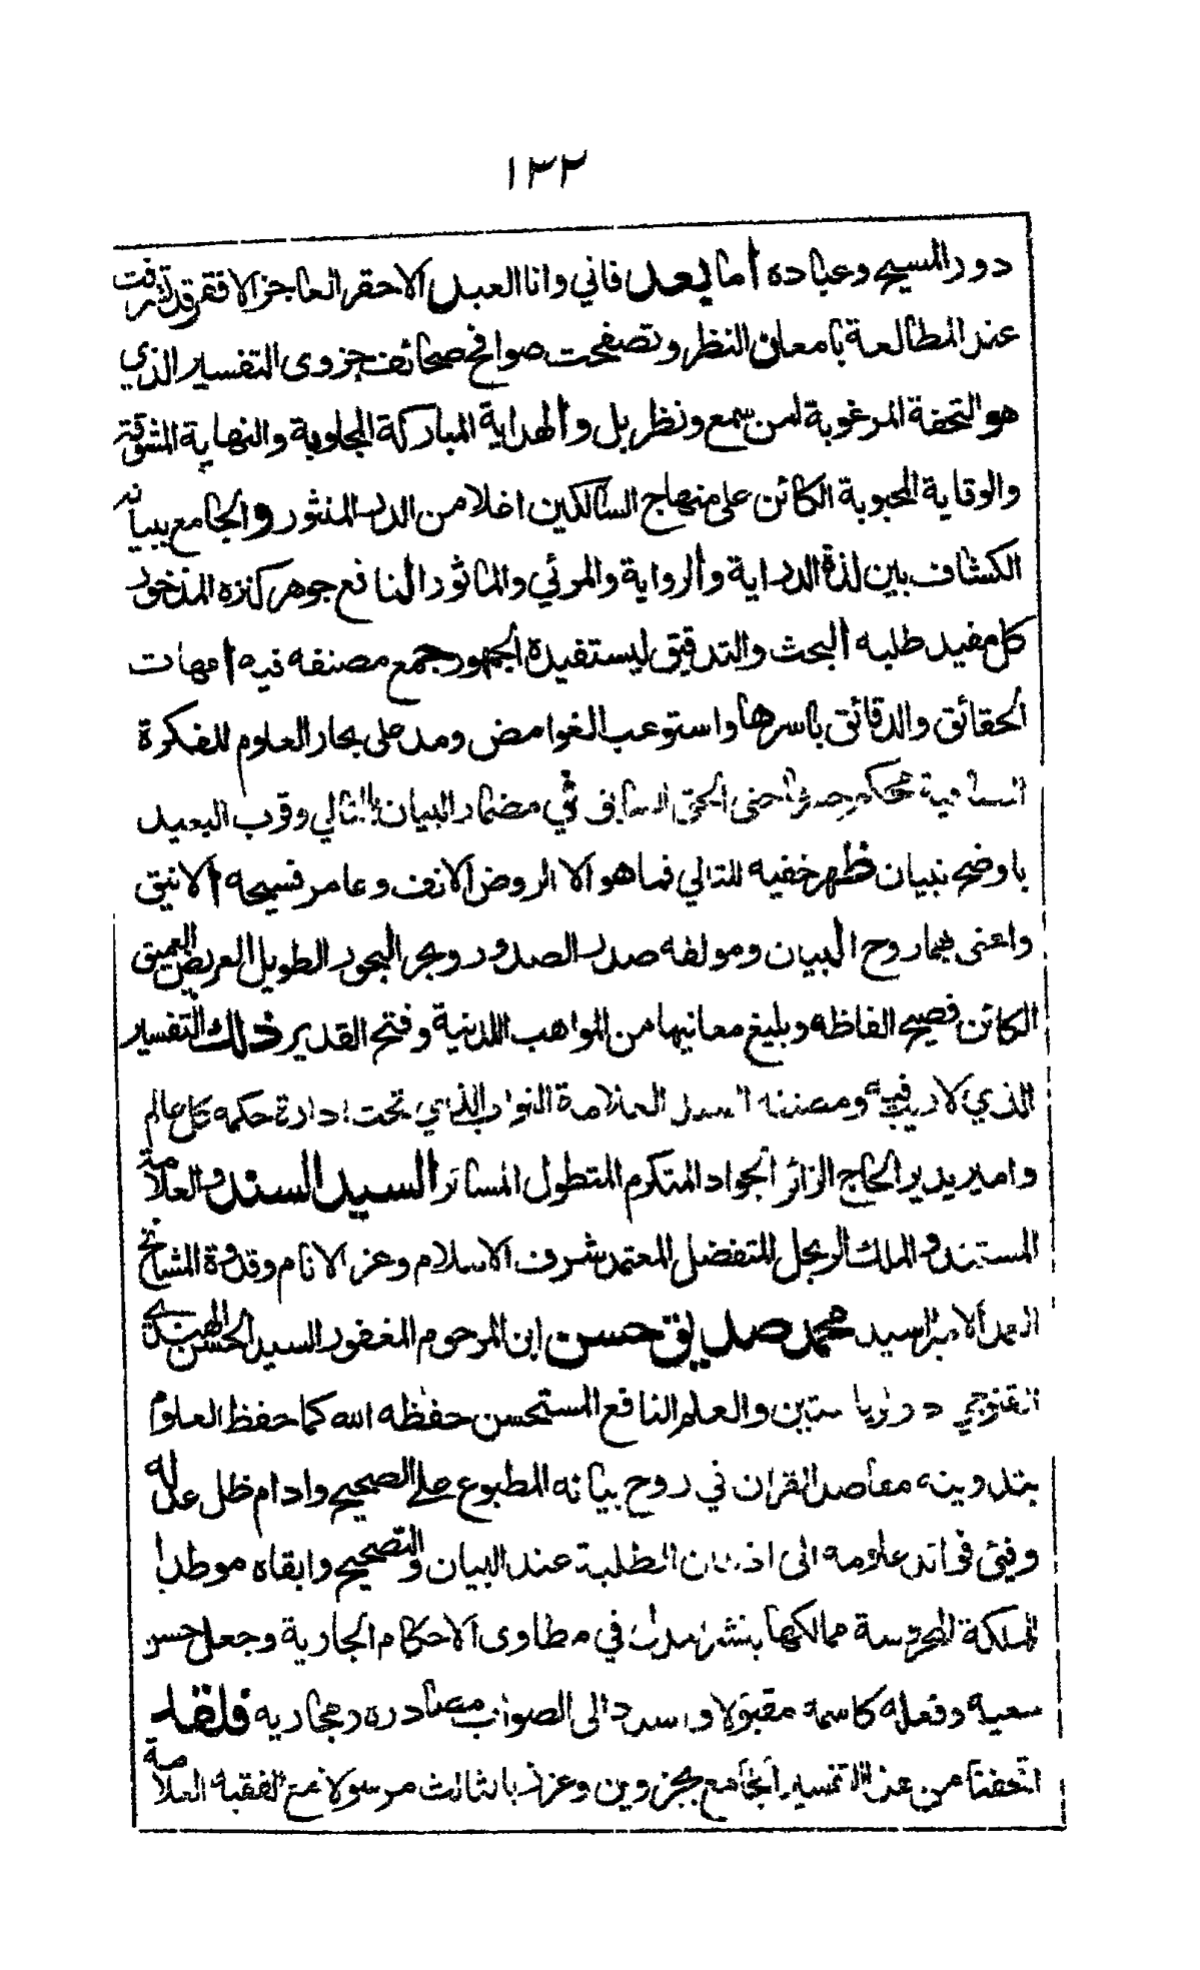 ١٣٢
دور المسيح وعباده أما بعد فاني وانا العبد الاحقر العاجز الافقر قد تشرفت
عند المطالعة بامعان النظر وتصفحت صوافح صحائف جزوى التفسير الذي
هو التحفة المرغوبة لمن سمع ونظر بل والهداية المباركة المجلوبة والنهاية المشوقة
والوقاية المحبوبة الكائن على منهاج السالكين اغلا من الدر المنثور والجامع ببيانه
الكشاف بين لذة الدراية والرواية والمرئي والماثور النافع جوهر كنزه المذخور
كل مفيد طلبه البحث والتدقيق ليستفيدة الجمهور جمع مصنفه فيه امهات
الحقائق والدقائق باسرها واستوعب الغوامض ومد على بحار العلوم للفكرة
محكم حتى الحق في مضمار البيان بالتالي وقرب البعيد
باوضح تبيان ظهر خفيه للتالي فما هو الا الروض الانف وعامر فسيحه الانيق
واعنى بهما روح البيان ومولفه صدر الصدور وبحر البحور الطويل العريض العميق
الكائن فصيح الفاظه وبليغ معانيها من المواهب اللدنية وفتح القدير ذلك التفسير
الذي لاريب فيه ومصنفه السيد العلامة النواب الذي تحت ادارة حكمه كل عالم
وامير يدير الحاج الزائر الجواد المتكرم المتطول السيد السند والعلامة
المستند والملك الرجل المتفضل المعتمد شرف الاسلام وعز الانام وقدوة المشائخ
الامير السيد محمد صديق حسن ابن المرحوم المغفور السيد الحسن الهندي
القنوجي والعلم النافع المستحسن حفظه الله كما حفظ العلوم
بتدوينه مقاصد القران في روح بيانه المطبوع على الصحيح وادام ظل عدله
وفيئ فوائد علومه الى اذهان الطلبة عند البيان والتصحيح وابقاه موطدا
المملكة المحروسة ممالكها بنشر في مطاوى الاحكام الجارية وجعل حسن
سعيه وفعله كاسمه مقبولا وسدد الى الصواب مصادره ومجاريه فلقد
اتحفنا من هذا التفسير الجامع بجزوين وعزز بالثالث مرسولا مع الفقيه العلامة